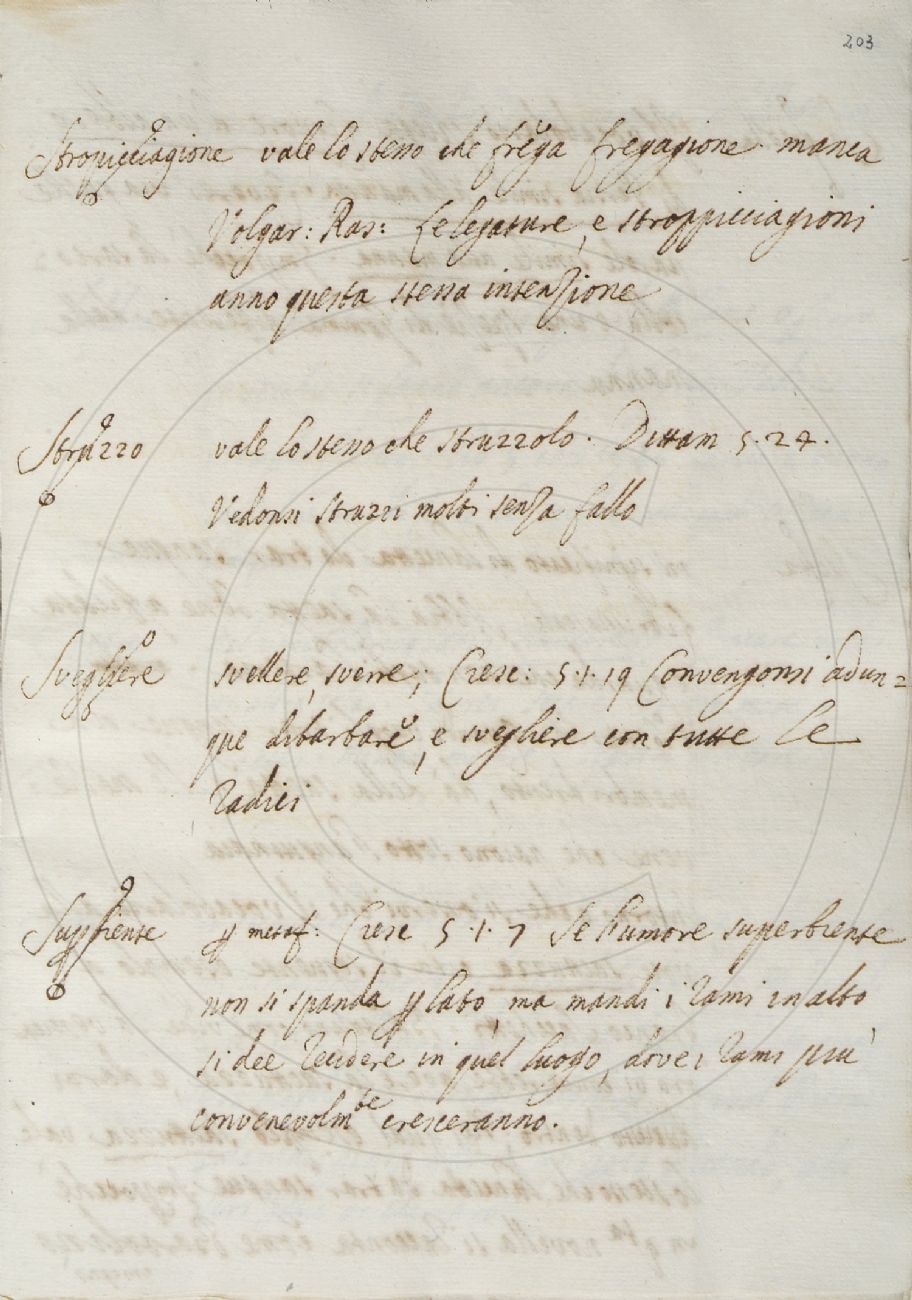 203
Stropicciagione vale lo stesso che frega fregagione. manca
Volgar: Ras: Le legature, e stroppicciagioni
anno questa stessa intenzione
Struzzo vale lo stesso che struzzolo. Dittam 5.24.
Vedonsi struzzi molti senza fallo
Svegliere svellere, sverre; Cresc: 5.1.19 Convengonsi adun=
que dibarbare, e svegliere con tutte le
radici
Superbiente p metaf: Cresc 5.1.7 Se l'umore superbiente
non si spanda p lato, ma mandi i rami in alto
si dee recidere in quel luogo, dove i rami più
convenevolmte cresceranno.